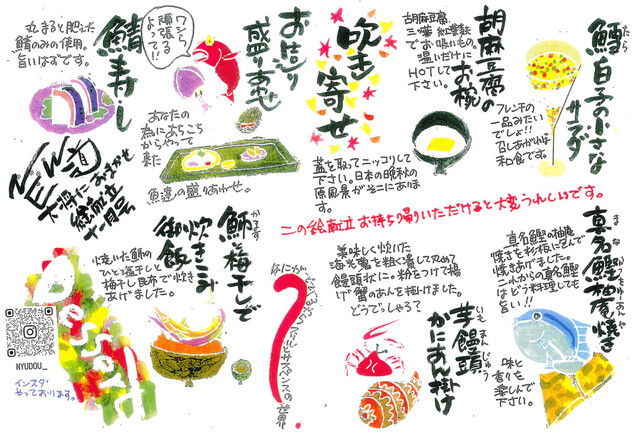 鱈白子の小さな
たら
サラダ
フレンチの
一品みたい
でしょ!!
召しあがれば
和食です。
胡麻豆腐の
お椀
胡麻豆腐、
三葉 紅葉麩
でお吸いもの。
温いだけに
HOTして
下さい。
吹き寄せ
蓋を取ってニッコリして
下さい。日本の晩秋の
原風景がそこにありま
す。
お造り
盛りあわせ
ワシら
頑張る
よって!!
あなたの
為にあちこち
からやって
来た
魚達の盛りあわせ。
鯖寿し
丸まると肥えた
鯖のみの使用。
旨いはずです。
NEW道
大将におまかせ
絵献立
十一月号
この絵献立お持ち帰りいただけると大変うれしいです。
真名鰹柚庵焼き
真名鰹の柚庵
焼きを杉板にはさんで
焼きあげました。
これからの真名鰹
はどう料理しても
旨い!!
味と
香りを
楽しんで
下さい。
芋饅頭
いもまんじゅう
かにあん掛け
美味しく炊いた
海老芋を粗く潰して丸めて
饅頭状に。粉をつけて揚
げ蟹のあんを掛けました。
どうでしゃろ?
なにがでるやらスリルとサスペンスの世界。
?
魳と梅干しで
かます
炊きこみ
御飯
焼いた魳の
ひと塩干しと
梅干し昆布で炊き
あげました。
NYUDOU_
インスタ
やっております。